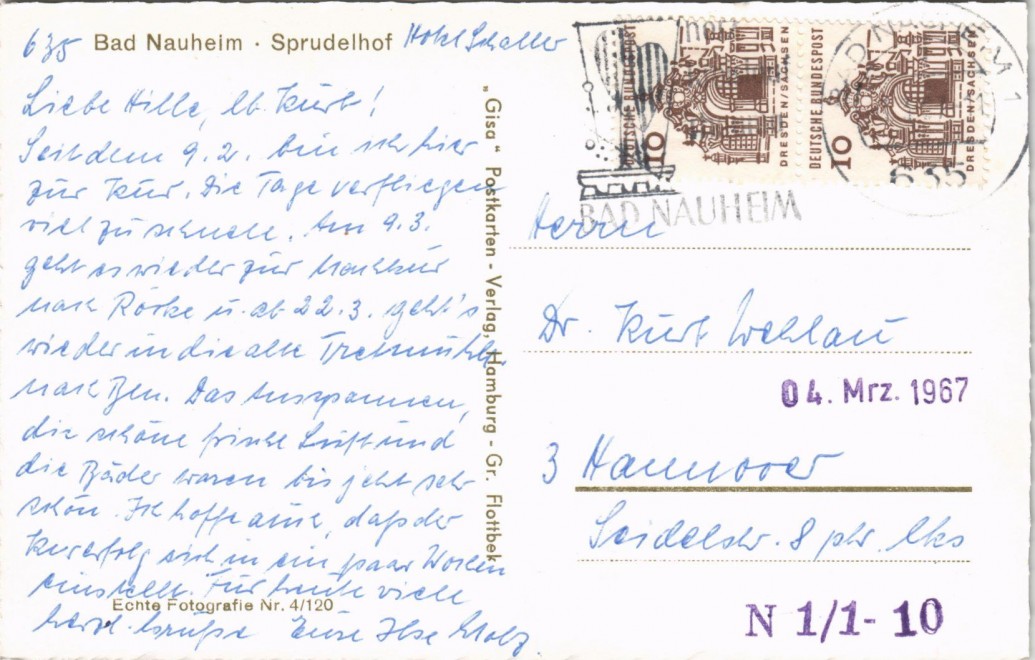 635 Bad Nauheim · Sprudelhof Hotel Schaller
Liebe Hille, lb. Kurt!
Seit dem 9.2. bin ich hier
zur Kur. Die Tage verfliegen
viel zu schnell. Am 9.3.
geht es wieder zur Nachkur
nach u. ab 22.3. geht's
wieder in die alte Tretmühle
nach Ben. Das Ausspannen,
die schöne frische Luft und
die Bäder waren bis jetzt sehr
schön. Ich hoffe auch, daß der
Kurerfolg sich in ein paar Wochen
einstellt. Für heute viele
Echte Fotografie Nr. 4/120
herzl. Grüße Eure Ilse
"Gisa" Postkarten - Verlag, Hamburg - Gr. Flottbek
DEUTSCHE BUNDESPOST
10
DRESDEN/SACHSEN
DEUTSCHE BUNDESPOST
10
DRESDEN/SACHSEN
BAD NAUHEIM 1
635
BAD NAUHEIM
Herrn
Dr. Kurt Wehlau
04. Mrz. 1967
3 Hannover
Seidelstr. 8 ptr. lks
N 1/1- 10